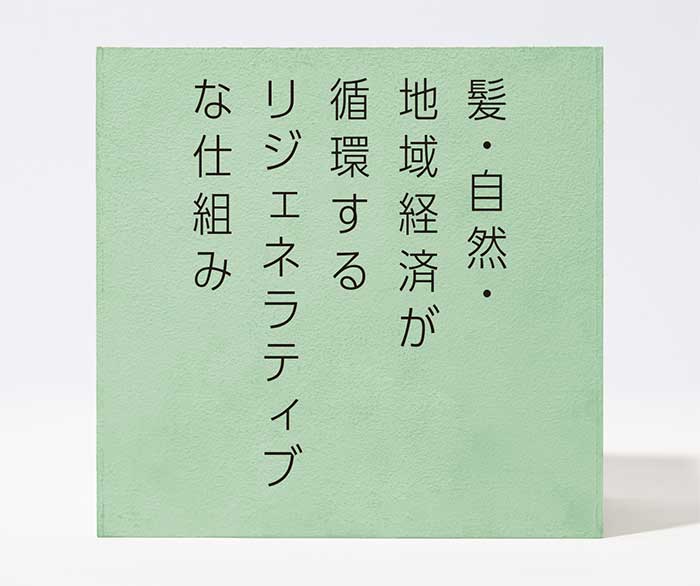 髪・自然・
地域経済が
循環する
リジェネラティブ
な仕組み